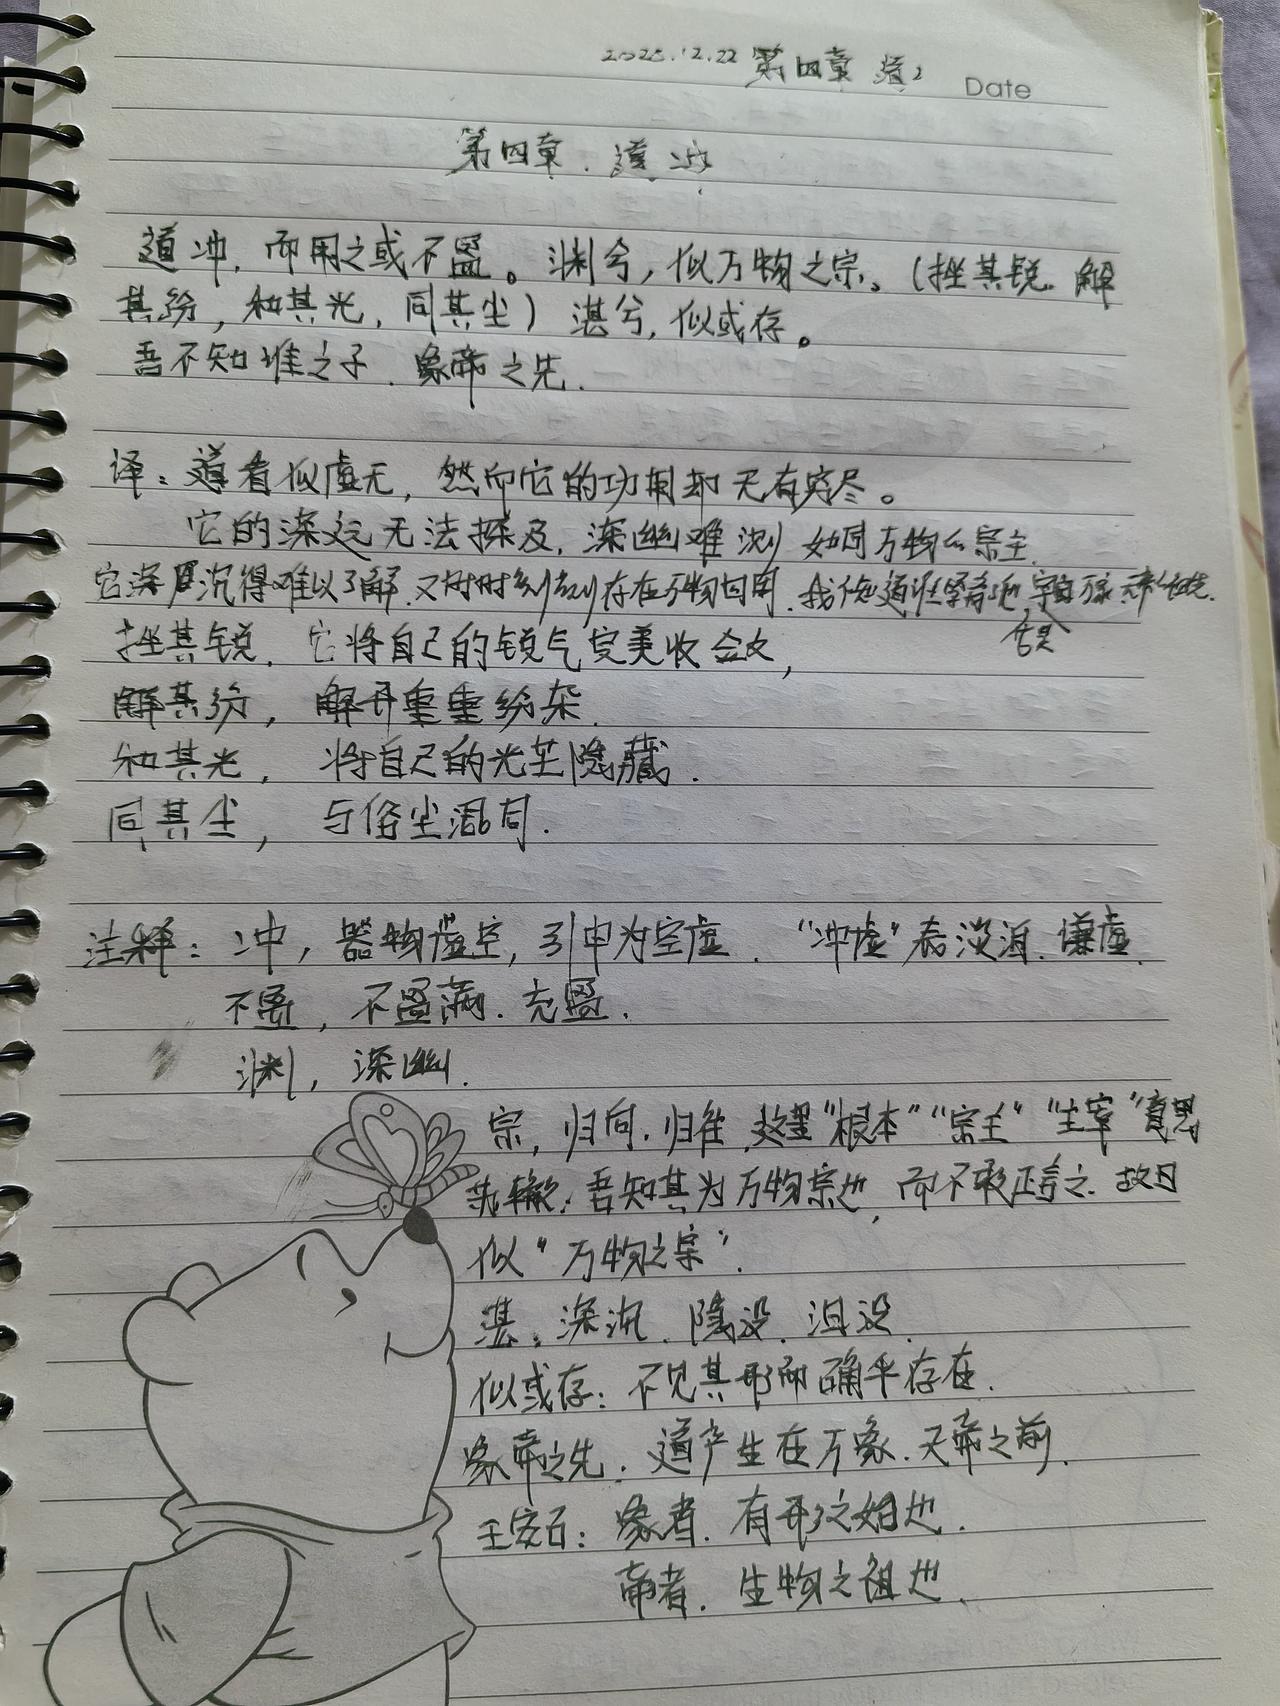 12.22 第四章 道
Date
第四章. 道冲
道冲, 而用之或不盈。渊兮, 似万物之宗。(挫其锐. 解
其纷, 和其光, 同其尘) 湛兮, 似或存。
吾不知谁之子. 象帝之先.
译: 道看似虚无, 然而它的功用却无有穷尽。
它的深远无法探及, 深幽难测 如同万物的宗主.
它深厚沉得难以了解. 又时时刻刻存在万物四周.
挫其锐. 它将自己的锐气完美收敛,
解其纷, 解开重重纷杂.
和其光, 将自己的光芒隐藏.
同其尘, 与俗尘混同.
注释: 冲, 器物虚空, 引申为空虚. “冲虚”表淡泊. 谦虚.
不盈, 不盈满. 充盈.
渊, 深幽.
宗, 归向. 归往 这里“根本”“宗主”“主宰”意思
苏辙: 吾知其为万物宗也, 而不敢正言之. 故曰
似“万物之宗”.
湛: 深沉. 隐没. 泪没.
似或存: 不见其形而确乎存在.
象帝之先. 道产生在万象. 天帝之前.
王安石: 象者. 有形之始也.
帝者. 生物之祖也.